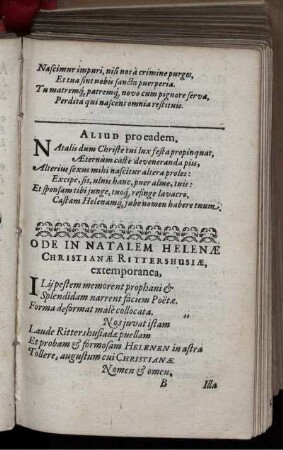 Nascimur impuri, nisi nos à crimine purges,
Et tua sint nobis sancta puerperia.
Tu matremq́, patremq́, novo cum pignore serva,
Perdita qui nascens omnia restituis.
ALIUD pro eadem.
NAtalis dum Christe tui lux festa propinquat,
Æternùm castè deveneranda piis,
Alterius sexus mihi nascitur altera proles:
Excipe, sis, ulnis hanc, puer alme, tuis:
Et sponsam tibi junge, tuoq́, refinge lavacro,
Castam Helenamq́, jube nomen habere tuum.
ODE IN NATALEM HELENÆ
CHRISTIANÆ RITTERSHUSIÆ,
extemporanea,
ILij pestem memorent prophani &
Splendidam narrent faciem Poëtæ,
Forma deformat malè collocata.
Nos juvat istam
Laude Rittershusiadæ puellam
Et probam & formosam HELENEN in astra
Tollere, augustum cui CHRISTIANÆ
Nomen & omen,
B Illa